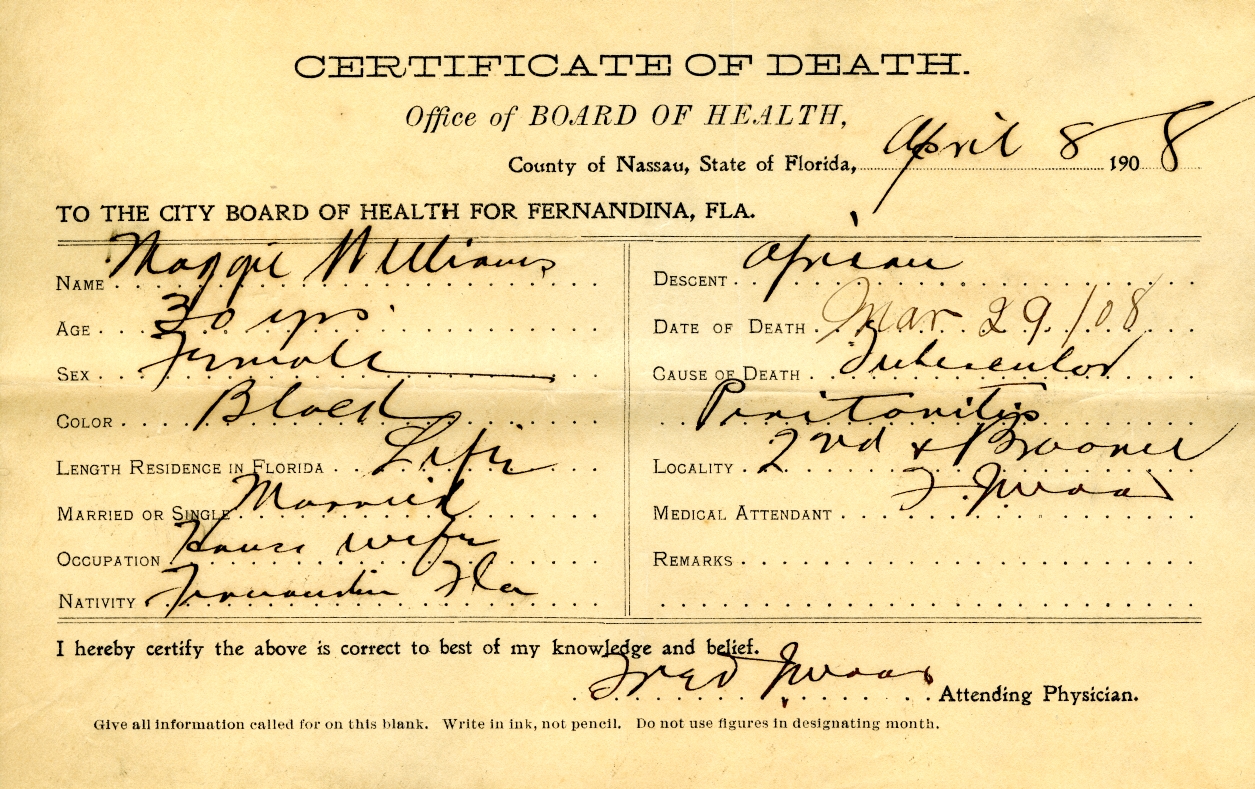 CERTIFICATE OF DEATH.
Office of BOARD OF HEALTH,
County of Nassau, State of Florida, April 8 1908
TO THE CITY BOARD OF HEALTH FOR FERNANDINA, FLA.
NAME Maggie Williams
AGE 30 yrs
SEX Female
COLOR Black
LENGTH RESIDENCE IN FLORIDA Life
MARRIED OR SINGLE Married
OCCUPATION House wife
NATIVITY Fernandina Fla
DESCENT African
DATE OF DEATH Mar 29/08
CAUSE OF DEATH Tubercular
Peritonitis
LOCALITY 2nd &
MEDICAL ATTENDANT F.
REMARKS
I hereby certify the above is correct to best of my knowledge and belief.
Fred Attending Physician.
Give all information called for on this blank. Write in ink, not pencil. Do not use figures in designating month.